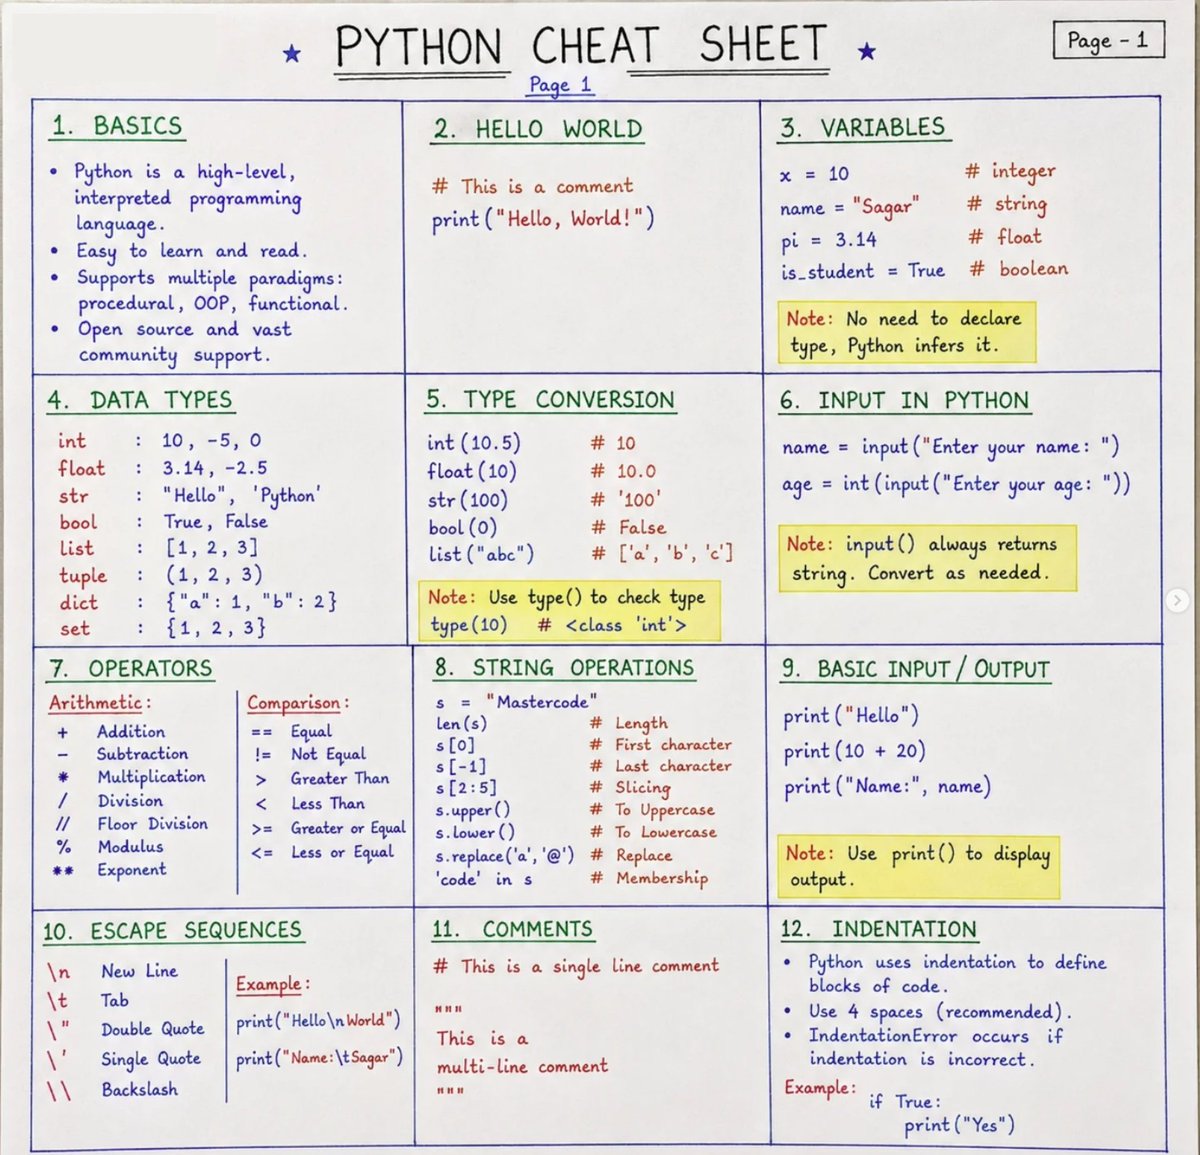 PYTHON CHEAT SHEET
Page - 1
Page 1
1. BASICS
• Python is a high-level,
interpreted programming
language.
• Easy to learn and read.
• Supports multiple paradigms:
procedural, OOP, functional.
• Open source and vast
community support.
2. HELLO WORLD
# This is a comment
print("Hello, World!")
3. VARIABLES
x = 10 # integer
name = "Sagar" # string
pi = 3.14 # float
is_student = True # boolean
Note: No need to declare
type, Python infers it.
4. DATA TYPES
int : 10, -5, 0
float : 3.14, -2.5
str : "Hello", 'Python'
bool : True, False
list : [1, 2, 3]
tuple : (1, 2, 3)
dict : {"a": 1, "b": 2}
set : {1, 2, 3}
5. TYPE CONVERSION
int(10.5) # 10
float(10) # 10.0
str(100) # '100'
bool(0) # False
list("abc") # ['a', 'b', 'c']
Note: Use type() to check type
type(10) # <class 'int'>
6. INPUT IN PYTHON
name = input("Enter your name: ")
age = int(input("Enter your age: "))
Note: input() always returns
string. Convert as needed.
7. OPERATORS
Arithmetic:
+ Addition
- Subtraction
* Multiplication
/ Division
// Floor Division
% Modulus
** Exponent
Comparison:
== Equal
!= Not Equal
> Greater Than
< Less Than
>= Greater or Equal
<= Less or Equal
8. STRING OPERATIONS
s = "Mastercode"
len(s) # Length
s[0] # First character
s[-1] # Last character
s[2:5] # Slicing
s.upper() # To Uppercase
s.lower() # To Lowercase
s.replace('a', '@') # Replace
'code' in s # Membership
9. BASIC INPUT / OUTPUT
print("Hello")
print(10 + 20)
print("Name:", name)
Note: Use print() to display
output.
10. ESCAPE SEQUENCES
\n New Line
\t Tab
\" Double Quote
\' Single Quote
\\ Backslash
Example:
print("Hello\nWorld")
print("Name:\tSagar")
11. COMMENTS
# This is a single line comment
"""
This is a
multi-line comment
"""
12. INDENTATION
• Python uses indentation to define
blocks of code.
• Use 4 spaces (recommended).
• IndentationError occurs if
indentation is incorrect.
Example:
if True:
print("Yes")